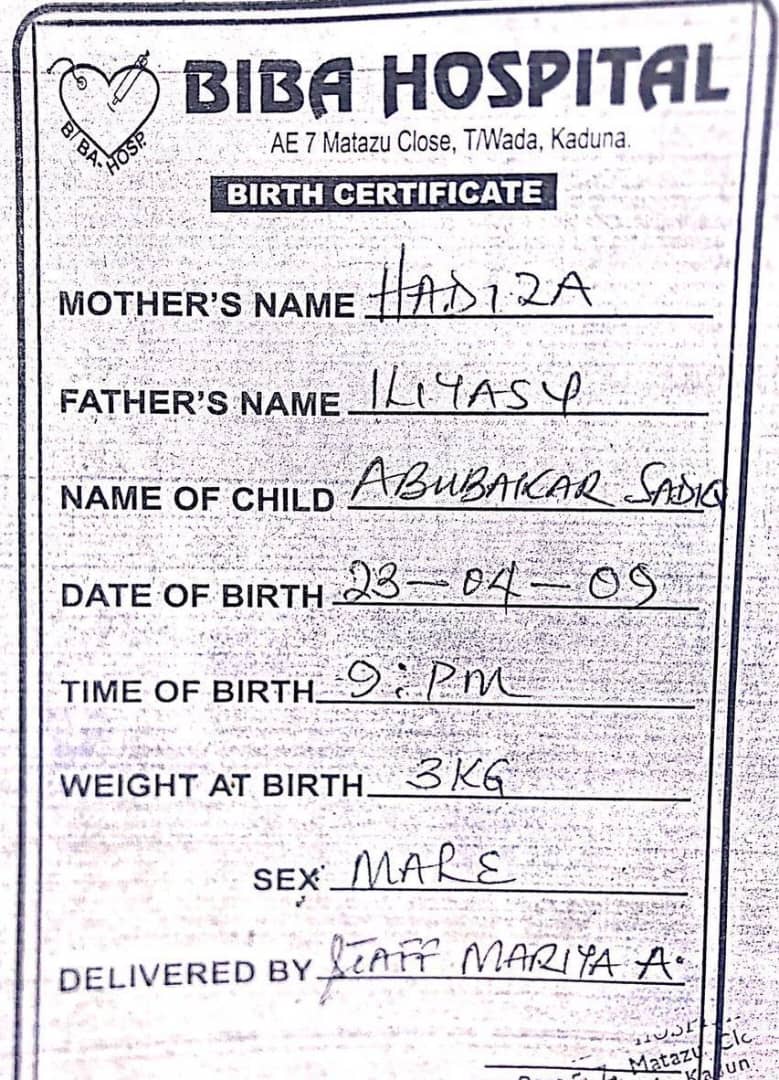 BIBA HOSPITAL
BI BA. HOSP.
AE 7 Matazu Close, T/Wada, Kaduna.
BIRTH CERTIFICATE
MOTHER'S NAME HADIZA
FATHER'S NAME ILIYASU
NAME OF CHILD ABUBAKAR SADIQ
DATE OF BIRTH 23-04-09
TIME OF BIRTH 9: PM
WEIGHT AT BIRTH 3KG
SEX MALE
DELIVERED BY STAFF MARIYA A.
Matazu Clo